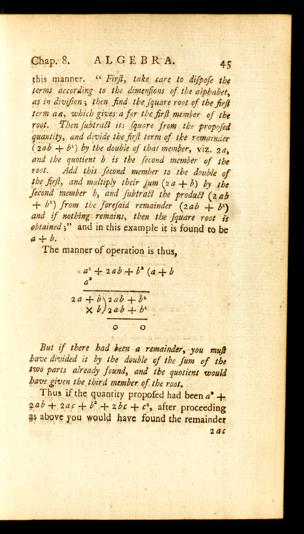 Chap. 8. ALGEBRA. 45
this manner. “ First, take care to dispose the
terms according to the dimensions of the alphabet,
as in division; then find the square root of the first
term aa, which gives a for the first member of the
root. Then subtract its square from the proposed
quantity, and divide the first term of the remainder
(2ab + b²) by the double of that member, viz. 2a,
and the quotient b is the second member of the
root. Add this second member to the double of
the first, and multiply their sum (2a + b) by the
second member b, and subtract the product (2ab
+ b²) from the foresaid remainder (2ab + b²)
and if nothing remains, then the square root is
obtained;” and in this example it is found to be
a + b.
The manner of operation is thus,
a² + 2ab + b² (a + b
a²
2a + b\2ab + b²
× b/2ab + b²
0 0
But if there had been a remainder, you must
have divided it by the double of the sum of the
two parts already found, and the quotient would
have given the third member of the root.
Thus if the quantity proposed had been a² +
2ab + 2ac + b² + 2bc + c², after proceeding
as above you would have found the remainder
2ac